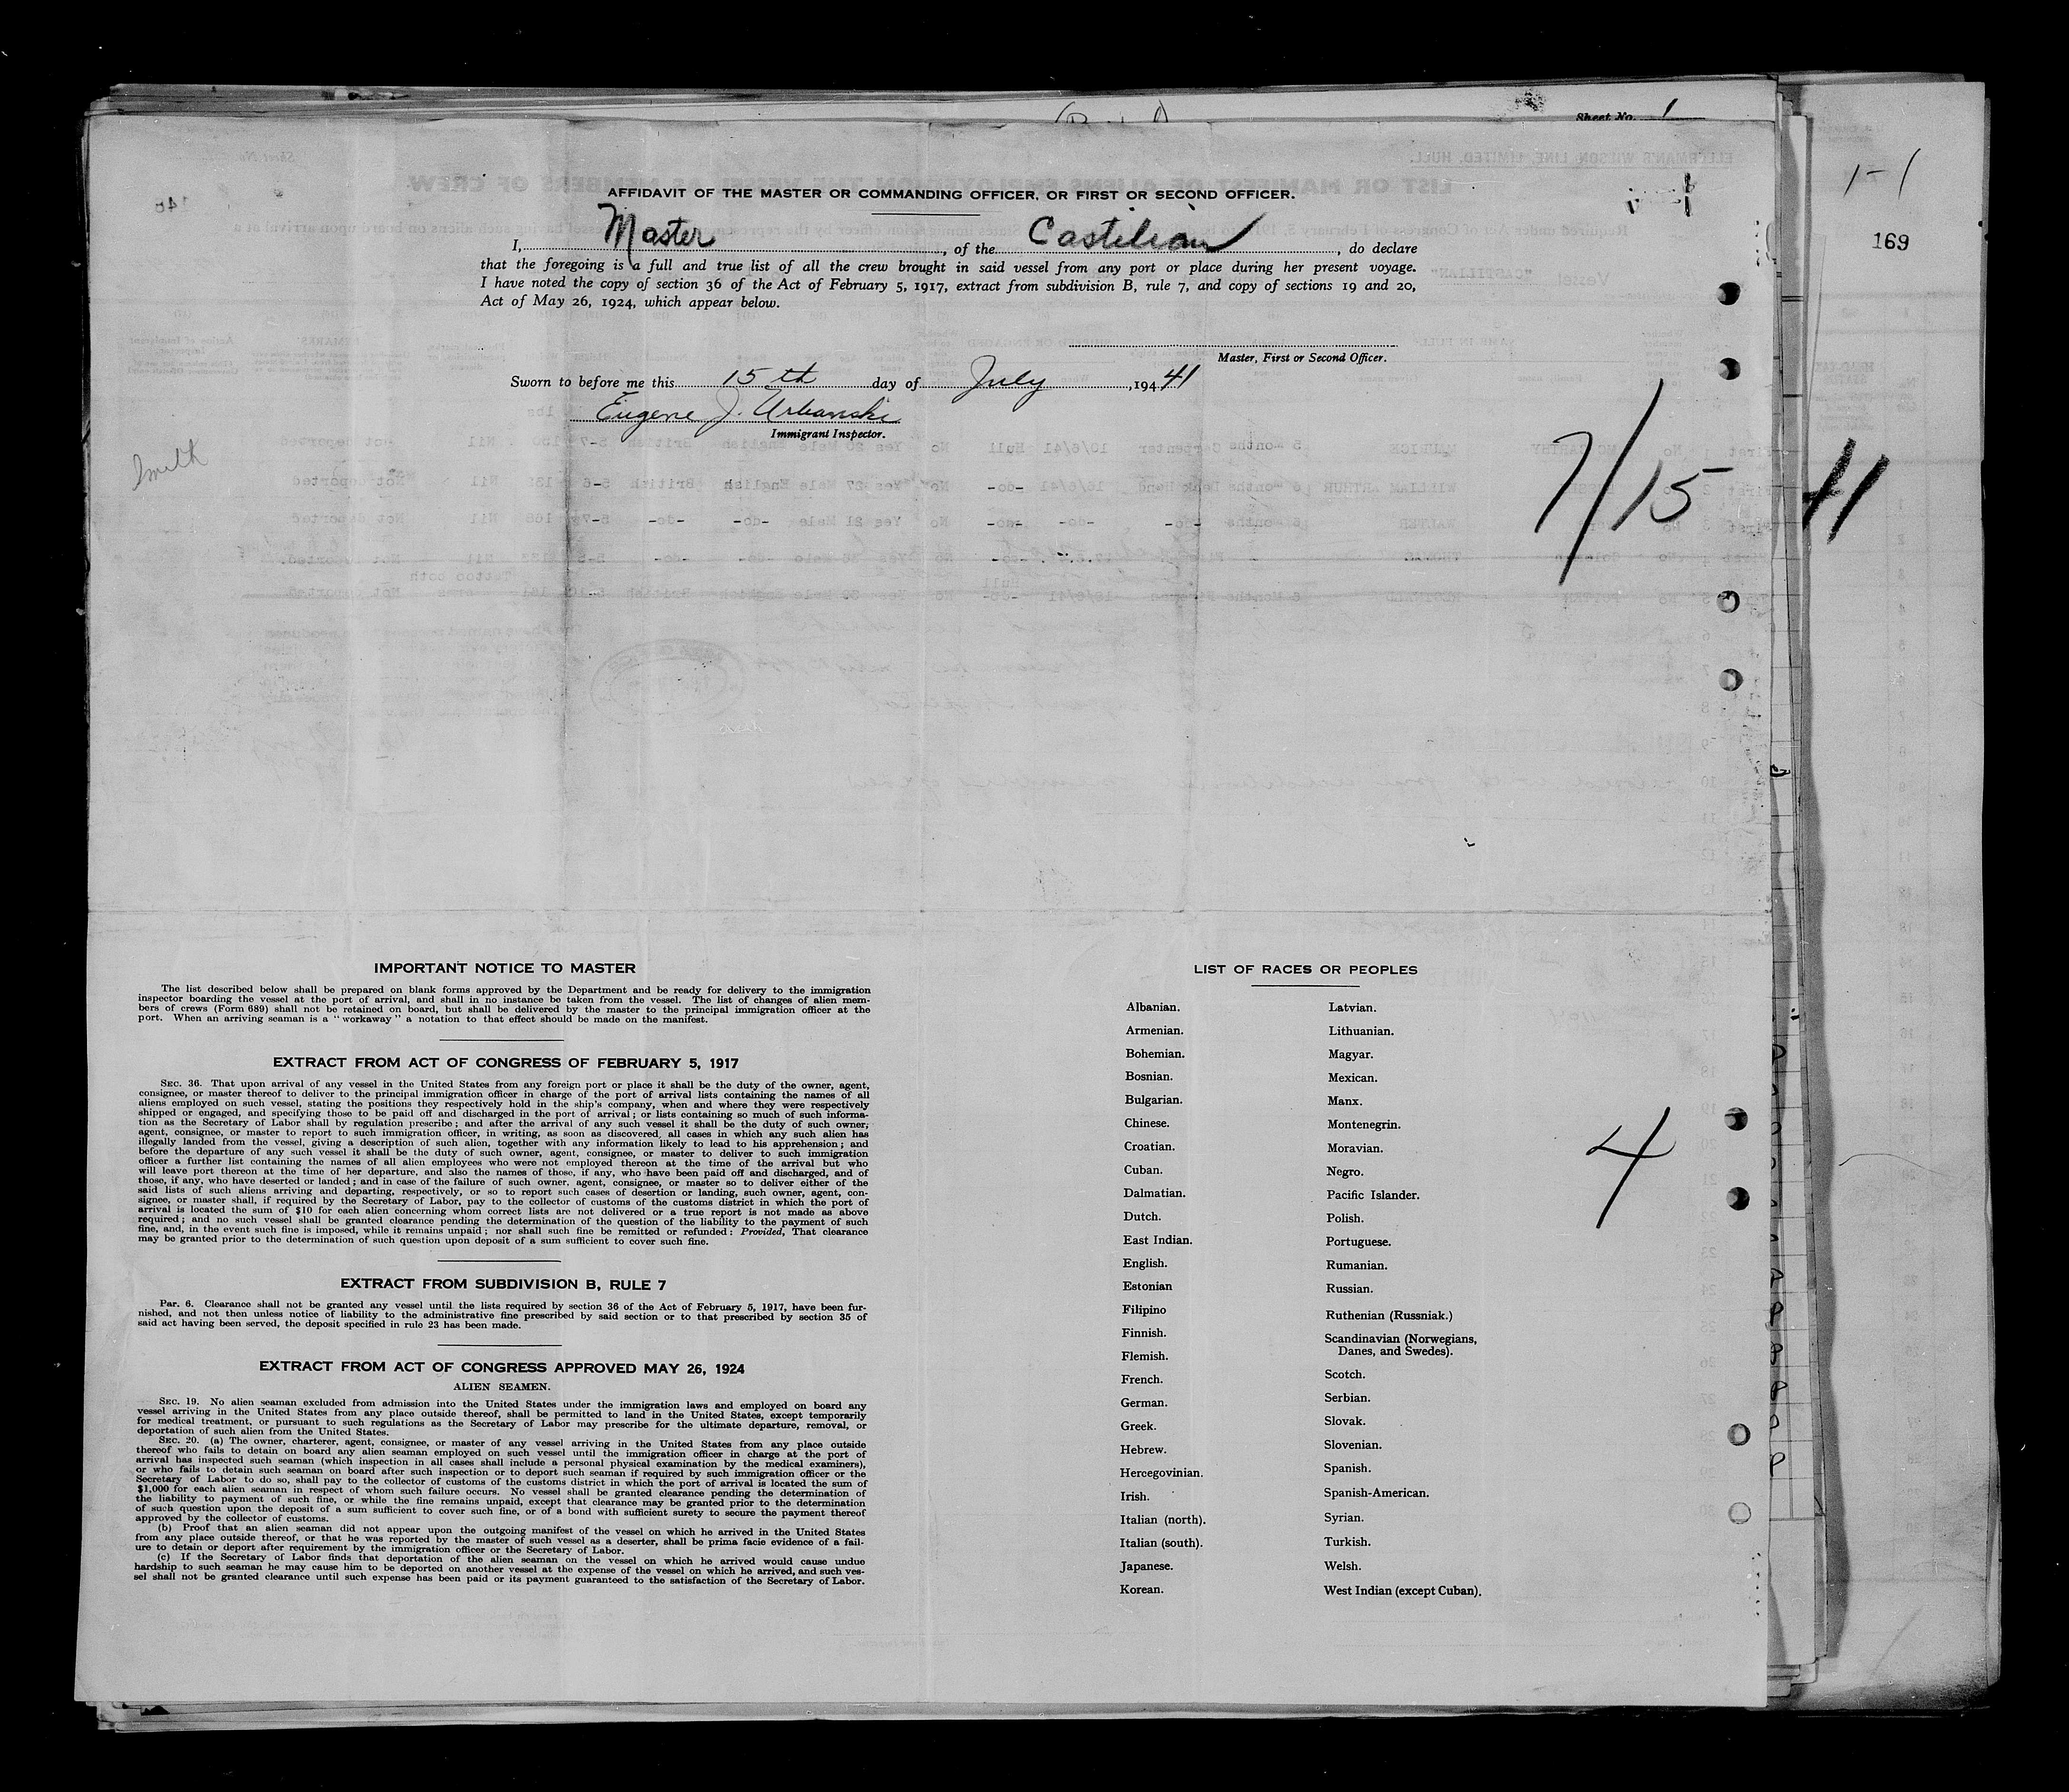 Sheet No. 1
1-1
169
AFFIDAVIT OF THE MASTER OR COMMANDING OFFICER, OR FIRST OR SECOND OFFICER.
I, Master, of the Castilian, do declare
that the foregoing is a full and true list of all the crew brought in said vessel from any port or place during her present voyage.
I have noted the copy of section 36 of the Act of February 5, 1917, extract from subdivision B, rule 7, and copy of sections 19 and 20,
Act of May 26, 1924, which appear below.
Master, First or Second Officer.
Sworn to before me this 15th day of July, 194 41
Eugene J. Urbanski
Immigrant Inspector.
Smith
7/15 41
IMPORTANT NOTICE TO MASTER
The list described below shall be prepared on blank forms approved by the Department and be ready for delivery to the immigration
inspector boarding the vessel at the port of arrival, and shall in no instance be taken from the vessel. The list of changes of alien mem-
bers of crews (Form 689) shall not be retained on board, but shall be delivered by the master to the principal immigration officer at the
port. When an arriving seaman is a "workaway" a notation to that effect should be made on the manifest.
EXTRACT FROM ACT OF CONGRESS OF FEBRUARY 5, 1917
SEC. 36. That upon arrival of any vessel in the United States from any foreign port or place it shall be the duty of the owner, agent,
consignee, or master thereof to deliver to the principal immigration officer in charge of the port of arrival lists containing the names of all
aliens employed on such vessel, stating the positions they respectively hold in the ship's company, when and where they were respectively
shipped or engaged, and specifying those to be paid off and discharged in the port of arrival; or lists containing so much of such informa-
tion as the Secretary of Labor shall by regulation prescribe; and after the arrival of any such vessel it shall be the duty of such owner,
agent, consignee, or master to report to such immigration officer, in writing, as soon as discovered, all cases in which any such alien has
illegally landed from the vessel, giving a description of such alien, together with any information likely to lead to his apprehension; and
before the departure of any such vessel it shall be the duty of such owner, agent, consignee, or master to deliver to such immigration
officer a further list containing the names of all alien employees who were not employed thereon at the time of the arrival but who
will leave port thereon at the time of her departure, and also the names of those, if any, who have been paid off and discharged, and of
those, if any, who have deserted or landed; and in case of the failure of such owner, agent, consignee, or master so to deliver either of the
said lists of such aliens arriving and departing, respectively, or so to report such cases of desertion or landing, such owner, agent, con-
signee, or master shall, if required by the Secretary of Labor, pay to the collector of customs of the customs district in which the port of
arrival is located the sum of $10 for each alien concerning whom correct lists are not delivered or a true report is not made as above
required; and no such vessel shall be granted clearance pending the determination of the question of the liability to the payment of such
fine, and, in the event such fine is imposed, while it remains unpaid; nor shall such fine be remitted or refunded: Provided, That clearance
may be granted prior to the determination of such question upon deposit of a sum sufficient to cover such fine.
EXTRACT FROM SUBDIVISION B, RULE 7
Par. 6. Clearance shall not be granted any vessel until the lists required by section 36 of the Act of February 5, 1917, have been fur-
nished, and not then unless notice of liability to the administrative fine prescribed by said section or to that prescribed by section 35 of
said act having been served, the deposit specified in rule 23 has been made.
EXTRACT FROM ACT OF CONGRESS APPROVED MAY 26, 1924
ALIEN SEAMEN.
SEC. 19. No alien seaman excluded from admission into the United States under the immigration laws and employed on board any
vessel arriving in the United States from any place outside thereof, shall be permitted to land in the United States, except temporarily
for medical treatment, or pursuant to such regulations as the Secretary of Labor may prescribe for the ultimate departure, removal, or
deportation of such alien from the United States.
SEC. 20. (a) The owner, charterer, agent, consignee, or master of any vessel arriving in the United States from any place outside
thereof who fails to detain on board any alien seaman employed on such vessel until the immigration officer in charge at the port of
arrival has inspected such seaman (which inspection in all cases shall include a personal physical examination by the medical examiners),
or who fails to detain such seaman on board after such inspection or to deport such seaman if required by such immigration officer or the
Secretary of Labor to do so, shall pay to the collector of customs of the customs district in which the port of arrival is located the sum of
$1,000 for each alien seaman in respect of whom such failure occurs. No vessel shall be granted clearance pending the determination of
the liability to payment of such fine, or while the fine remains unpaid, except that clearance may be granted prior to the determination
of such question upon the deposit of a sum sufficient to cover such fine, or of a bond with sufficient surety to secure the payment thereof
approved by the collector of customs.
(b) Proof that an alien seaman did not appear upon the outgoing manifest of the vessel on which he arrived in the United States
from any place outside thereof, or that he was reported by the master of such vessel as a deserter, shall be prima facie evidence of a fail-
ure to detain or deport after requirement by the immigration officer or the Secretary of Labor.
(c) If the Secretary of Labor finds that deportation of the alien seaman on the vessel on which he arrived would cause undue
hardship to such seaman he may cause him to be deported on another vessel at the expense of the vessel on which he arrived, and such ves-
sel shall not be granted clearance until such expense has been paid or its payment guaranteed to the satisfaction of the Secretary of Labor.
LIST OF RACES OR PEOPLES
Albanian.
Armenian.
Bohemian.
Bosnian.
Bulgarian.
Chinese.
Croatian.
Cuban.
Dalmatian.
Dutch.
East Indian.
English.
Estonian
Filipino
Finnish.
Flemish.
French.
German.
Greek.
Hebrew.
Hercegovinian.
Irish.
Italian (north).
Italian (south).
Japanese.
Korean.
Latvian.
Lithuanian.
Magyar.
Mexican.
Manx.
Montenegrin.
Moravian.
Negro.
Pacific Islander.
Polish.
Portuguese.
Rumanian.
Russian.
Ruthenian (Russniak.)
Scandinavian (Norwegians,
Danes, and Swedes).
Scotch.
Serbian.
Slovak.
Slovenian.
Spanish.
Spanish-American.
Syrian.
Turkish.
Welsh.
West Indian (except Cuban).
4